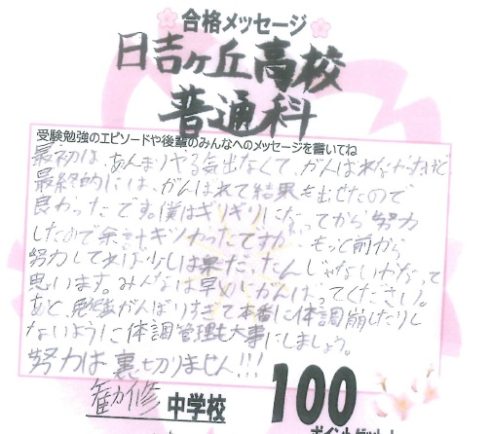 合格メッセージ
日吉ヶ丘高校
普通科
受験勉強のエピソードや後輩のみんなへのメッセージを書いてね
最初は、あんまりやる気出なくて、がんばれなかったけど
最終的には、がんばれて結果を出せたので
良かったです。僕はギリギリになってから努力
したので余計キツかったですが、もっと前から
努力してれば少しは楽だったんじゃないかなって
思います。みんなは早めにがんばってください。
あと、勉強がんばりすぎて本番に体調崩したりし
ないように体調管理も大事にしましょう。
努力は裏切りません!!!
勧修中学校
100